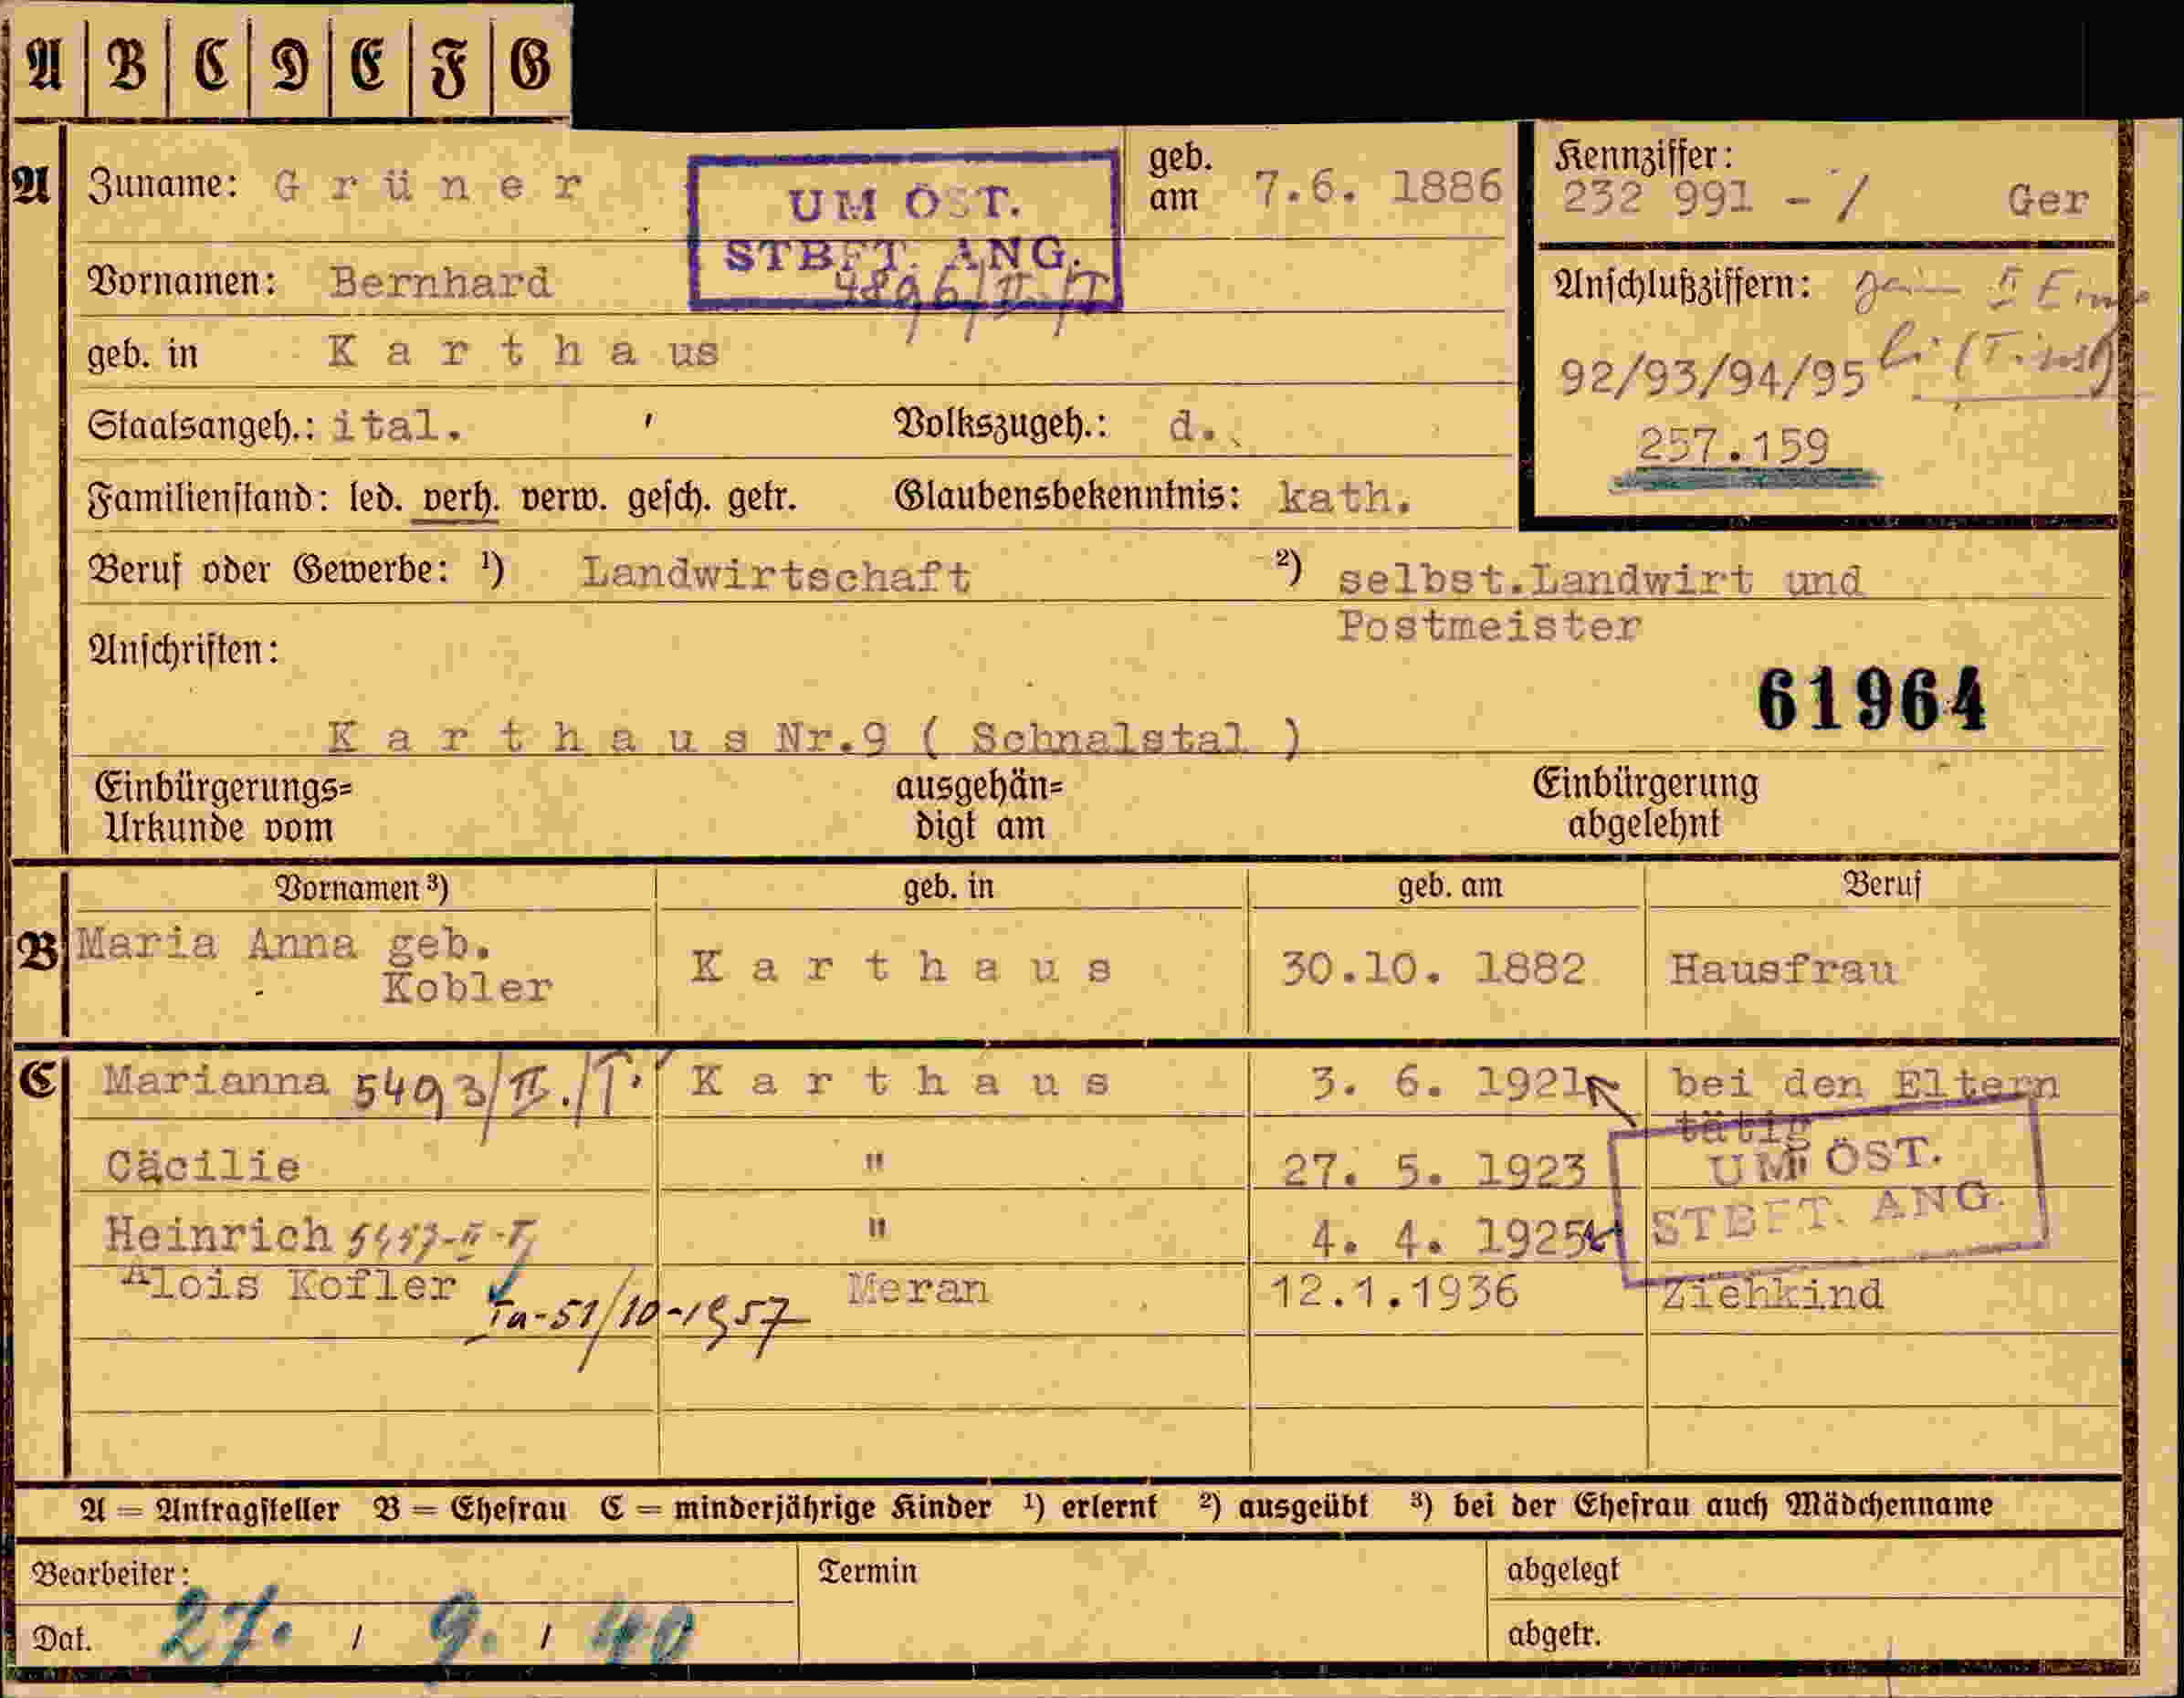 A B C D E F G
A Zuname: Grüner
UM ÖST.
STBFT. ANG.
4896/II./T
geb. am 7.6. 1886
Kennziffer:
232 991 - / Ger
Vornamen: Bernhard
Anschlußziffern:
geb. in Karthaus
92/93/94/95
Staatsangeh.: ital. Volkszugeh.: d.
257.159
Familienstand: led. verh. verw. gesch. getr. Glaubensbekenntnis: kath.
Beruf oder Gewerbe: ¹) Landwirtschaft ²) selbst.Landwirt und
Postmeister
Anschriften:
61964
Karthaus Nr.9 ( Schnalstal )
Einbürgerungs= ausgehän= Einbürgerung
Urkunde vom digt am abgelehnt
Vornamen ³) geb. in geb. am Beruf
B Maria Anna geb.
Kobler Karthaus 30.10. 1882 Hausfrau
C Marianna 5493/II./T. Karthaus 3. 6. 1921 bei den Eltern
tätig
UM ÖST.
STBFT. ANG.
Cäcilie " 27. 5. 1923
Heinrich " 4. 4. 1925
Alois Kofler Meran 12.1.1936 Ziehkind
Ia-51/10-1957
A = Antragsteller B = Ehefrau C = minderjährige Kinder ¹) erlernt ²) ausgeübt ³) bei der Ehefrau auch Mädchenname
Bearbeiter: Termin abgelegt
Dat. 27. / 9. / 40 abgetr.